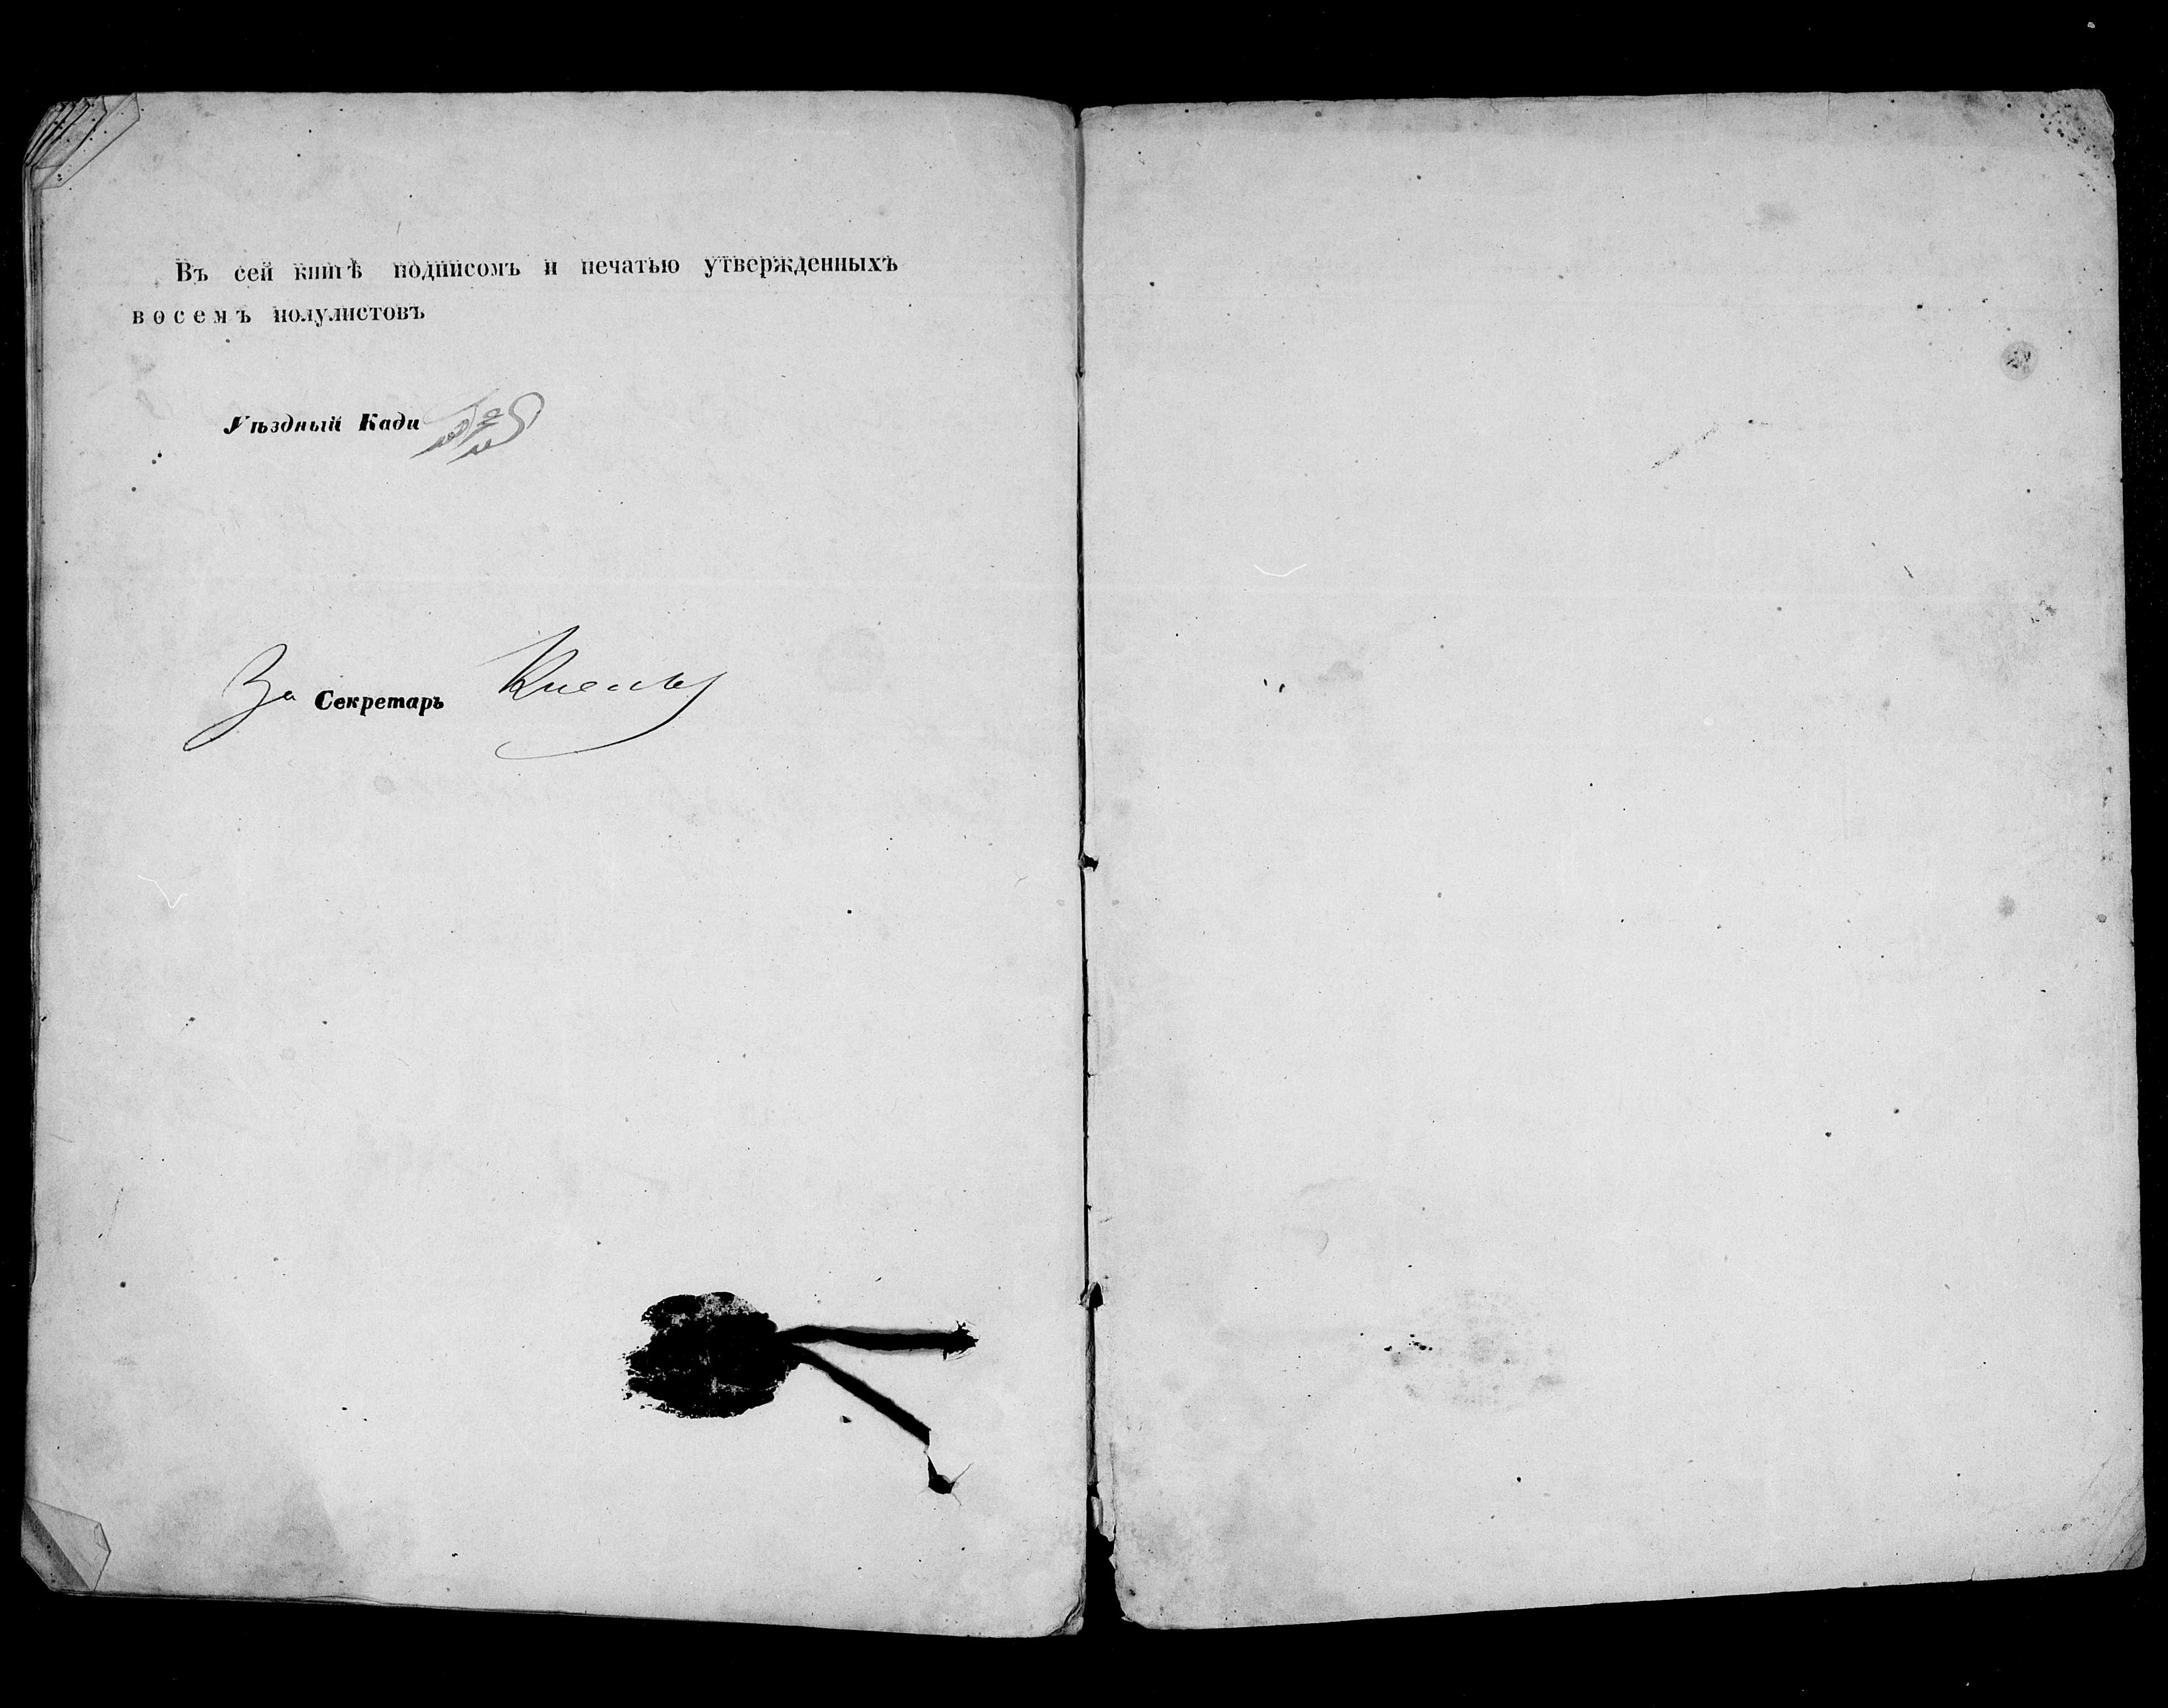 Въ сей книгѣ подписомъ и печатью утвержденныхъ
восемъ полулистовъ
Уѣздный Кади
За Секретарь